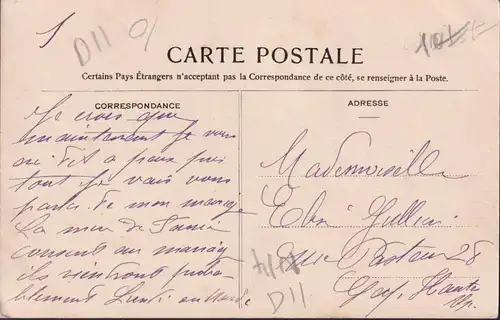 D11
CARTE POSTALE
Certains Pays Étrangers n'acceptant pas la Correspondance de ce côté, se renseigner à la Poste.
CORRESPONDANCE
Je crois que
maintenant je vous
ai dit a peux près
tout je vais vous
parler de mon mariage
La mère de
consent au mariage
ils viendront proba
blement Lundi ou Mardi
ADRESSE
Mademoiselle
Rue Pasteur 28
Gap Hautes
Alp.
D11